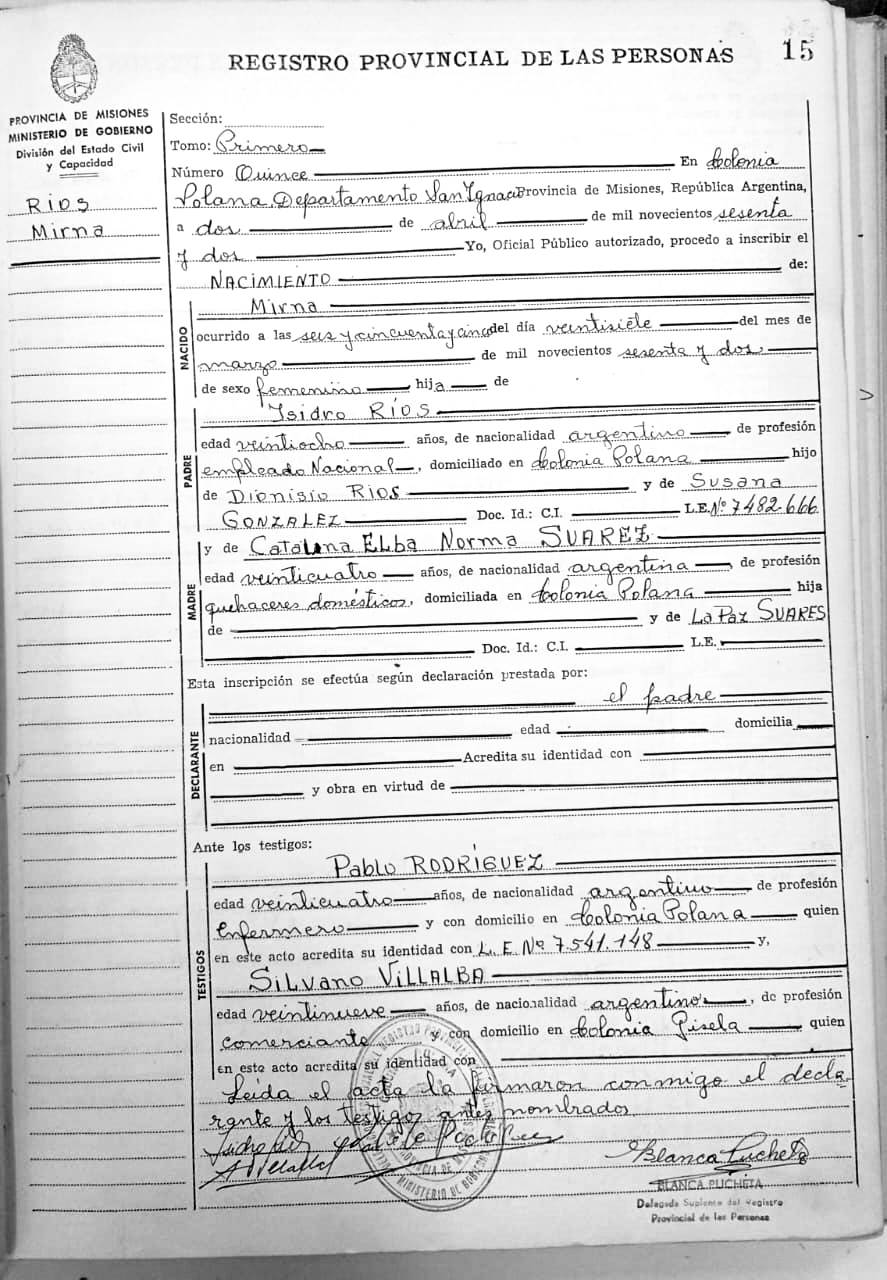 REGISTRO PROVINCIAL DE LAS PERSONAS
15
PROVINCIA DE MISIONES
MINISTERIO DE GOBIERNO
División del Estado Civil
y Capacidad
RÍOS
Mirna
Sección:
Tomo: Primero
Número Quince En Colonia
Polana Departamento San Ignacio Provincia de Misiones, República Argentina,
a dos de abril de mil novecientos sesenta
y dos Yo, Oficial Público autorizado, procedo a inscribir el
NACIMIENTO de:
NACIDO
Mirna
ocurrido a las seis y cincuenta y cinco del día veintisiete del mes de
marzo de mil novecientos sesenta y dos.
de sexo femenino hija de
PADRE
Isidro RÍOS
edad veintiocho años, de nacionalidad argentino de profesión
empleado Nacional, domiciliado en Colonia Polana hijo
de Dionisio RIOS y de Susana
GONZALEZ Doc. Id.: C.I. L.E. Nº 7482.666.
MADRE
y de Catalina ELba Norma SUAREZ
edad veinticuatro años, de nacionalidad argentina, de profesión
quehaceres domésticos, domiciliada en Colonia Polana hija
de y de La Paz SUARES
Doc. Id.: C.I. L.E.
Esta inscripción se efectúa según declaración prestada por:
el padre
DECLARANTE
nacionalidad edad domicilia
en Acredita su identidad con
y obra en virtud de
Ante los testigos:
TESTIGOS
Pablo RODRÍGUEZ
edad veinticuatro años, de nacionalidad argentino de profesión
Enfermero y con domicilio en Colonia Polana quien
en este acto acredita su identidad con L.E. Nº 7.541.148 y,
SILVANO VILLALBA
edad veintinueve años, de nacionalidad argentino, de profesión
comerciante y con domicilio en Colonia Gisela quien
en este acto acredita su identidad con
Leída el acta la firmaron conmigo el decla
rante y los testigos antes nombrados
Blanca Pucheta
BLANCA PUCHETA
Delegada Suplente del Registro
Provincial de las Personas
MINISTERIO DE GOBIERNO